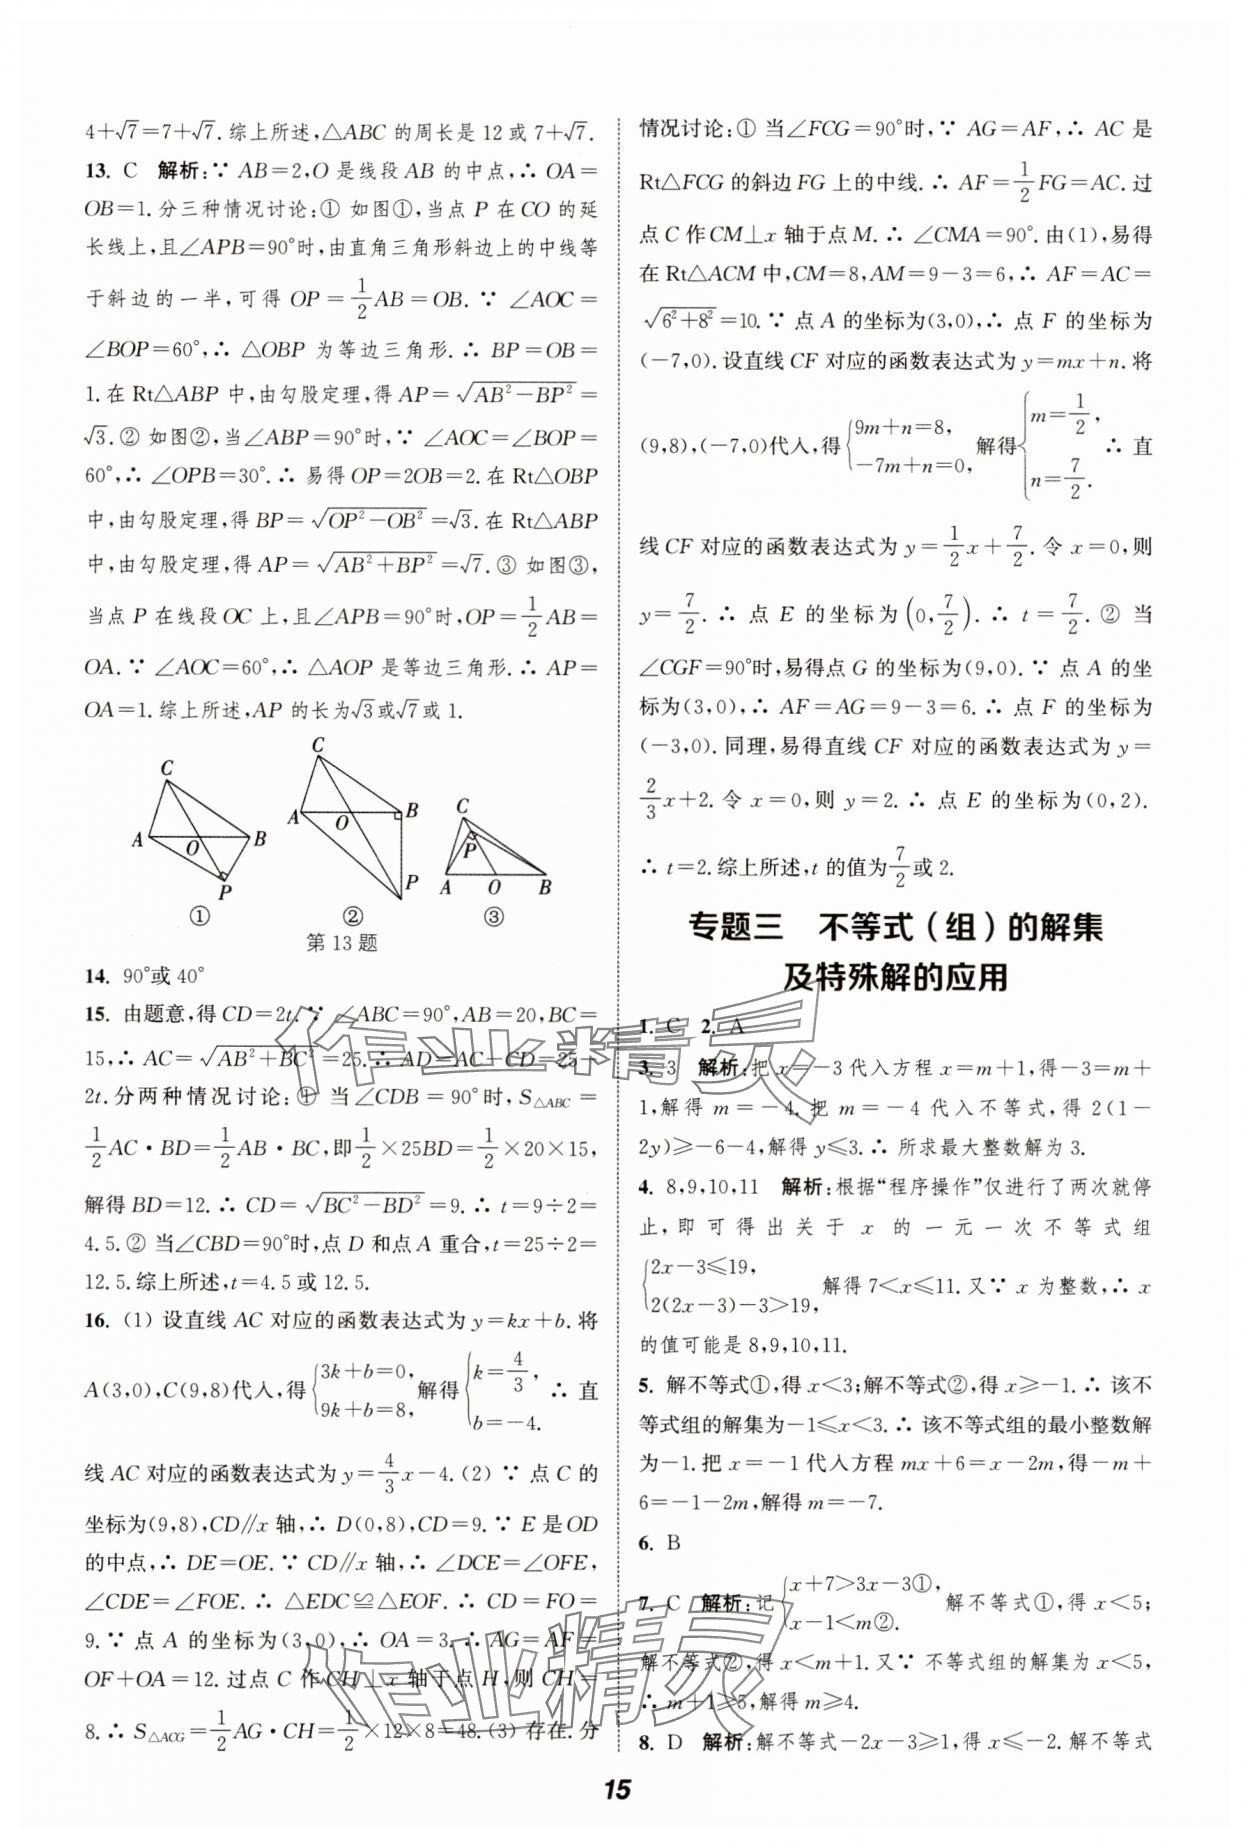 4+√7=7+√7. 综上所述,△ABC 的周长是 12 或 7+√7.
13. C 解析:∵ AB=2,O 是线段 AB 的中点,∴ OA=
OB=1. 分三种情况讨论:① 如图①,当点 P 在 CO 的延
长线上,且∠APB=90°时,由直角三角形斜边上的中线等
于斜边的一半,可得 OP=1/2AB=OB. ∵ ∠AOC=
∠BOP=60°,∴ △OBP 为等边三角形. ∴ BP=OB=
1. 在 Rt△ABP 中,由勾股定理,得 AP=√(AB²-BP²)=
√3. ② 如图②,当∠ABP=90°时,∵ ∠AOC=∠BOP=
60°,∴ ∠OPB=30°. ∴ 易得 OP=2OB=2. 在 Rt△OBP
中,由勾股定理,得 BP=√(OP²-OB²)=√3. 在 Rt△ABP
中,由勾股定理,得 AP=√(AB²+BP²)=√7. ③ 如图③,
当点 P 在线段 OC 上,且∠APB=90°时,OP=1/2AB=
OA. ∵ ∠AOC=60°,∴ △AOP 是等边三角形. ∴ AP=
OA=1. 综上所述,AP 的长为√3或√7或 1.
C A O B P ①
C A O B P ②
C P A O B ③
第 13 题
14. 90°或 40°
15. 由题意,得 CD=2t. ∵ ∠ABC=90°,AB=20,BC=
15,∴ AC=√(AB²+BC²)=25. ∴ AD=AC-CD=25-
2t. 分两种情况讨论:① 当∠CDB=90°时,S△ABC=
1/2AC·BD=1/2AB·BC,即1/2×25BD=1/2×20×15,
解得 BD=12. ∴ CD=√(BC²-BD²)=9. ∴ t=9÷2=
4.5. ② 当∠CBD=90°时,点 D 和点 A 重合,t=25÷2=
12.5. 综上所述,t=4.5 或 12.5.
16. (1) 设直线 AC 对应的函数表达式为 y=kx+b. 将
A(3,0),C(9,8)代入,得{3k+b=0, 9k+b=8, 解得{k=4/3, b=-4. ∴ 直
线 AC 对应的函数表达式为 y=4/3x-4. (2) ∵ 点 C 的
坐标为(9,8),CD∥x 轴,∴ D(0,8),CD=9. ∵ E 是 OD
的中点,∴ DE=OE. ∵ CD∥x 轴,∴ ∠DCE=∠OFE,
∠CDE=∠FOE. ∴ △EDC≌△EOF. ∴ CD=FO=
9. ∵ 点 A 的坐标为(3,0),∴ OA=3. ∴ AG=AF=
OF+OA=12. 过点 C 作 CH⊥x 轴于点 H,则 CH=
8. ∴ S△ACG=1/2AG·CH=1/2×12×8=48. (3) 存在. 分
情况讨论:① 当∠FCG=90°时,∵ AG=AF,∴ AC 是
Rt△FCG 的斜边 FG 上的中线. ∴ AF=1/2FG=AC. 过
点 C 作 CM⊥x 轴于点 M. ∴ ∠CMA=90°. 由(1),易得
在 Rt△ACM 中,CM=8,AM=9-3=6,∴ AF=AC=
√(6²+8²)=10. ∵ 点 A 的坐标为(3,0),∴ 点 F 的坐标为
(-7,0). 设直线 CF 对应的函数表达式为 y=mx+n. 将
(9,8),(-7,0)代入,得{9m+n=8, -7m+n=0, 解得{m=1/2, n=7/2. ∴ 直
线 CF 对应的函数表达式为 y=1/2x+7/2. 令 x=0,则
y=7/2. ∴ 点 E 的坐标为(0,7/2). ∴ t=7/2. ② 当
∠CGF=90°时,易得点 G 的坐标为(9,0). ∵ 点 A 的坐
标为(3,0),∴ AF=AG=9-3=6. ∴ 点 F 的坐标为
(-3,0). 同理,易得直线 CF 对应的函数表达式为 y=
2/3x+2. 令 x=0,则 y=2. ∴ 点 E 的坐标为(0,2).
∴ t=2. 综上所述,t 的值为7/2或 2.
专题三 不等式(组)的解集
及特殊解的应用
1. C 2. A
3. 3 解析:把 x=-3 代入方程 x=m+1,得-3=m+
1,解得 m=-4. 把 m=-4 代入不等式,得 2(1-
2y)≥-6-4,解得 y≤3. ∴ 所求最大整数解为 3.
4. 8,9,10,11 解析:根据“程序操作”仅进行了两次就停
止,即可得出关于 x 的一元一次不等式组
{2x-3≤19, 2(2x-3)-3>19, 解得 7<x≤11. 又∵ x 为整数,∴ x
的值可能是 8,9,10,11.
5. 解不等式①,得 x<3;解不等式②,得 x≥-1. ∴ 该不
等式组的解集为-1≤x<3. ∴ 该不等式组的最小整数解
为-1. 把 x=-1 代入方程 mx+6=x-2m,得-m+
6=-1-2m,解得 m=-7.
6. B
7. C 解析:记{x+7>3x-3①, x-1<m②. 解不等式①,得 x<5;
解不等式②,得 x<m+1. 又∵ 不等式组的解集为 x<5,
∴ m+1≥5,解得 m≥4.
8. D 解析:解不等式-2x-3≥1,得 x≤-2. 解不等式
15
作业精灵
作业精灵